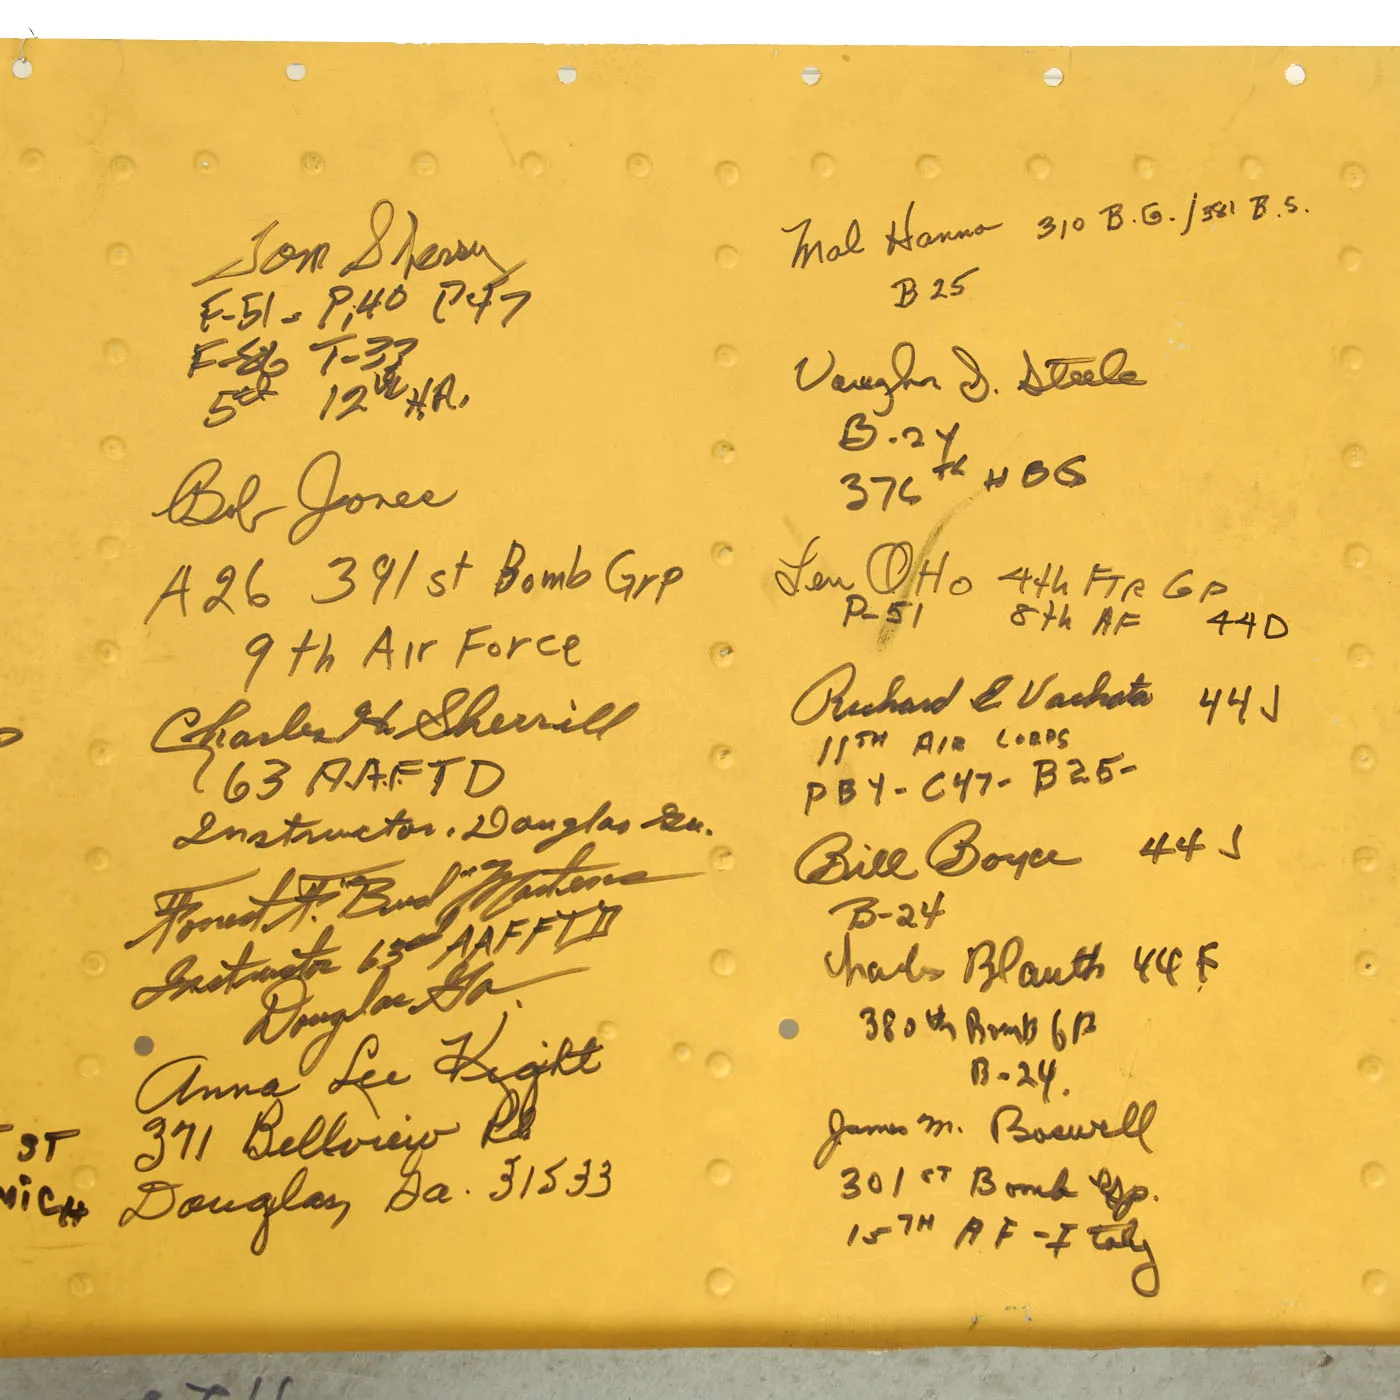 Tom Sherry
F-51 - P-40 P-47
F-86 T-33
5th 12th H.A.
Bob Jones
A26 391st Bomb Grp
9th Air Force
Charles H. Sherrill
63 A.A.F.T D
Instructor. Douglas Ga.
Forrest F. "Bud"
Instructor 63rd AAFFTD
Douglas Ga.
Anna Lee Kight
371 Bellview Rd
Douglas, Ga. 31533
ST
Mal Hanna 310 B.G./381 B.S.
B 25
Vaughn D. Steele
B-24
376th HBG
Len Otto 4th FTR GP
P-51 8th AF 44D
Richard E Vachata 44J
11TH AIR CORPS
PBY- C47- B25-
Bill Boyce 44J
B-24
Charles Blauth 44F
380th Bomb GP
B-24.
James M. Boswell
301ST Bomb Gp.
15TH AF - Italy